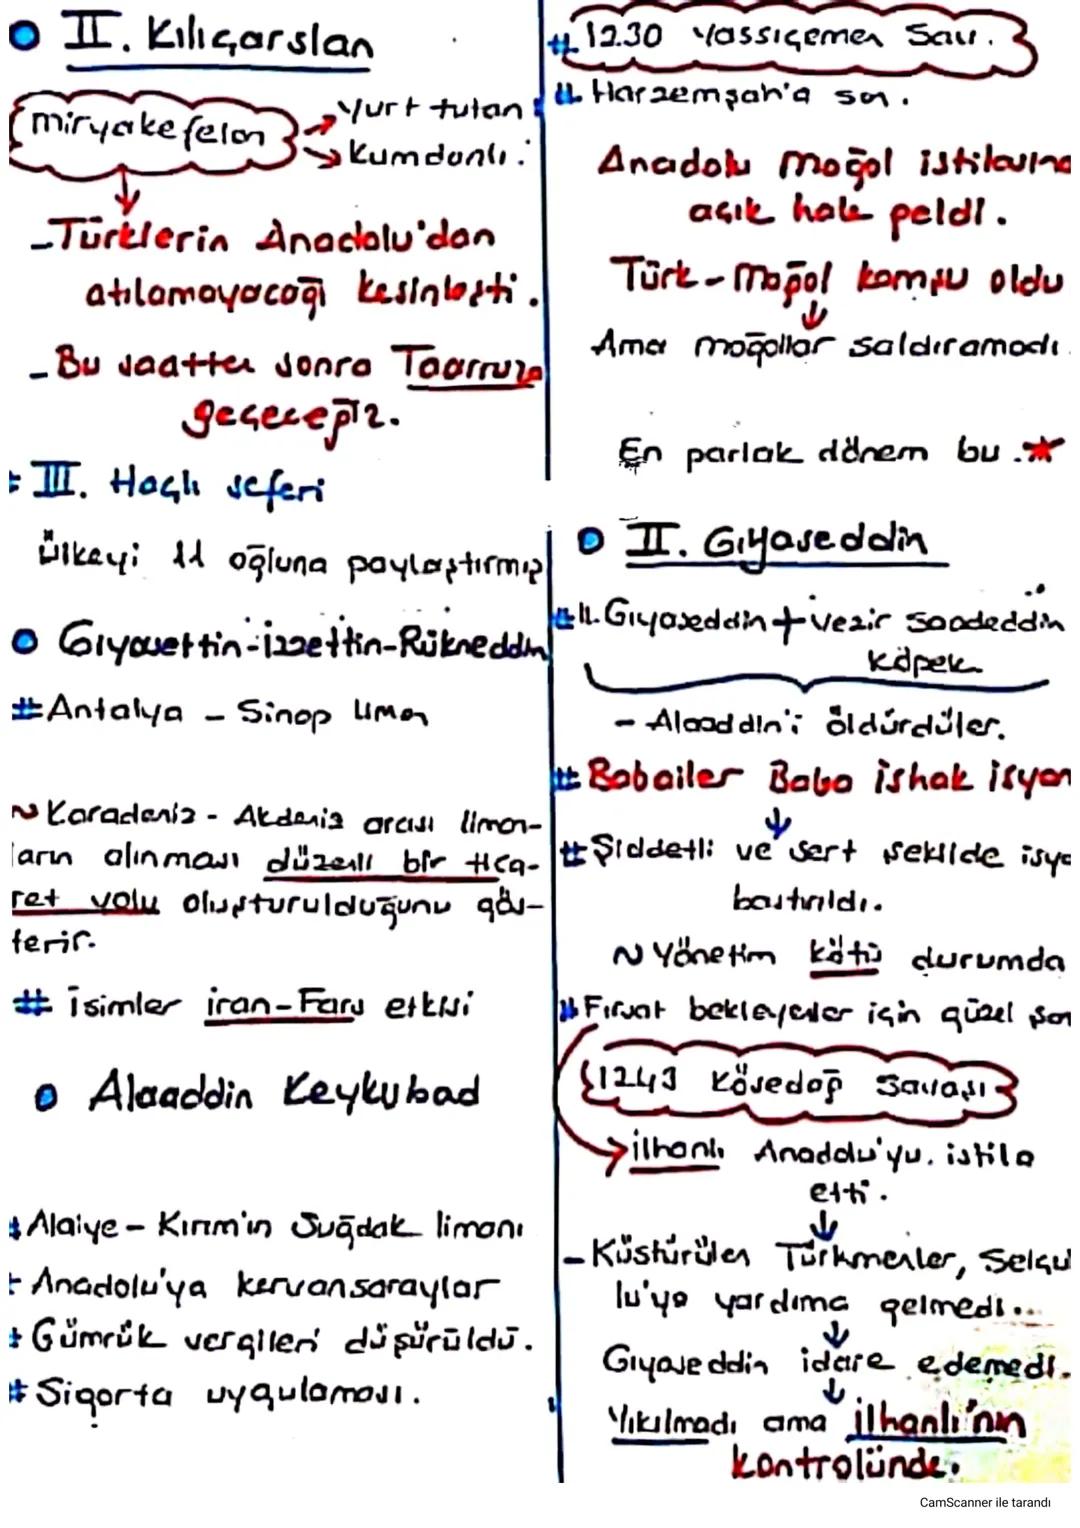 II. Kılıçarslan
miryakefelon
Yurt tutan
Kumdanlı.
- Türklerin Anadolu'dan
atılamayacağı kesinleşti.
- Bu saatten sonra Taarruza
geçeceğiz.
# III. Haçlı seferi
Ülkeyi 11 oğluna paylaştırmış
Gıyasettin-İzzettin-Rükneddin
# Antalya - Sinop liman
~ Karadeniz - Akdeniz arası liman-
ların alınması düzenli bir tica-
ret yolu oluşturulduğunu gös-
terir.
# İsimler iran-Fars etkisi
Alaaddin Keykubad
# Alaiye - Kırım'ın Suğdak limanı
# Anadolu'ya kervansaraylar
# Gümrük vergileri düşürüldü.
# Sigorta uygulaması.
# 1230 Yassıçemen Sav.
# Harzemşah'a son.
Anadolu Moğol istilasına
açık hale geldi.
Türk - Moğol komşu oldu
Ama moğollar saldıramadı.
En parlak dönem bu.
II. Gıyaseddin
# II. Gıyaseddin + vezir Saadeddin
köpek
- Alaaddin'i öldürdüler.
# Babailer Baba ishak isyan
# Şiddetli ve sert şekilde isya
bastırıldı.
~ Yönetim kötü durumda
# Fırsat bekleyenler için güzel
1243 Kösedağ Savaşı
ilhanlı Anadolu'yu. istila
etti.
- Küstürülen Türkmenler, Selçu
lu'ya yardıma gelmedi...
Gıyaseddin idare edemedi.
Yıkılmadı ama ilhanlı'nın
kontrolünde.
CamScanner ile tarandı